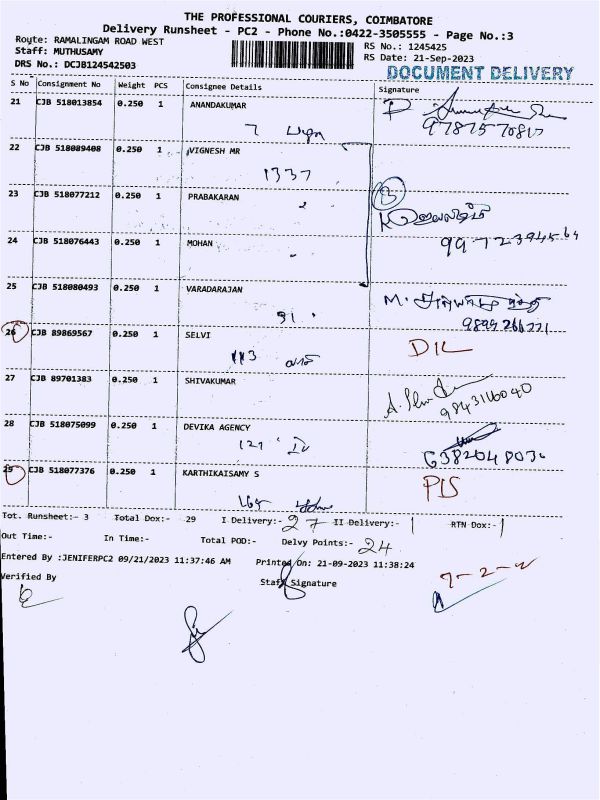 THE PROFESSIONAL COURIERS, COIMBATORE
Delivery Runsheet - PC2 - Phone No.:0422-3505555 - Page No.:3
Route: RAMALINGAM ROAD WEST
RS No.: 1245425
Staff: MUTHUSAMY
RS Date: 21-Sep-2023
DRS No.: DCJB124542503
DOCUMENT DELIVERY
S No Consignment No Weight PCS Consignee Details Signature
21 CJB 518013854 0.250 1 ANANDAKUMAR
7
22 CJB 518089408 0.250 1 VIGNESH MR
1337
23 CJB 518077212 0.250 1 PRABAKARAN
3
24 CJB 518076443 0.250 1 MOHAN
25 CJB 518080493 0.250 1 VARADARAJAN
91
26 CJB 89869567 0.250 1 SELVI DIL
113
27 CJB 89701383 0.250 1 SHIVAKUMAR
9843116040
28 CJB 518075099 0.250 1 DEVIKA AGENCY
29 CJB 518077376 0.250 1 KARTHIKAISAMY S PIS
165
Tot. Runsheet:- 3 Total Dox:- 29 I Delivery:- 27 II Delivery:- 1 RTN Dox:- 1
Out Time:- In Time:- Total POD:- Delvy Points:- 24
Entered By :JENIFERPC2 09/21/2023 11:37:46 AM Printed On: 21-09-2023 11:38:24
Verified By Staff Signature